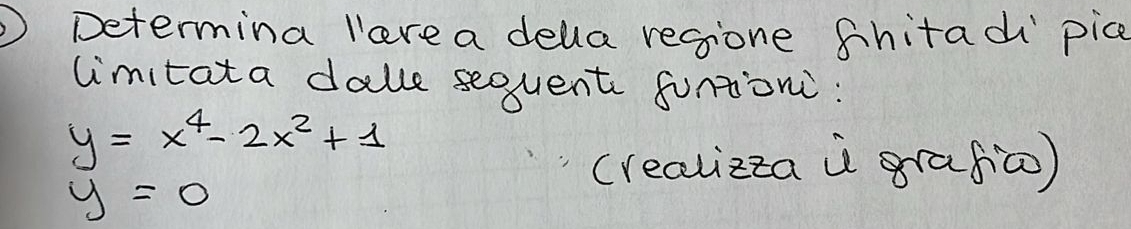 Determina l'area della regione finita di pia
limitata dalle seguenti funzioni:
y = x⁴ - 2x² + 1
y = 0
(realizza il grafico)